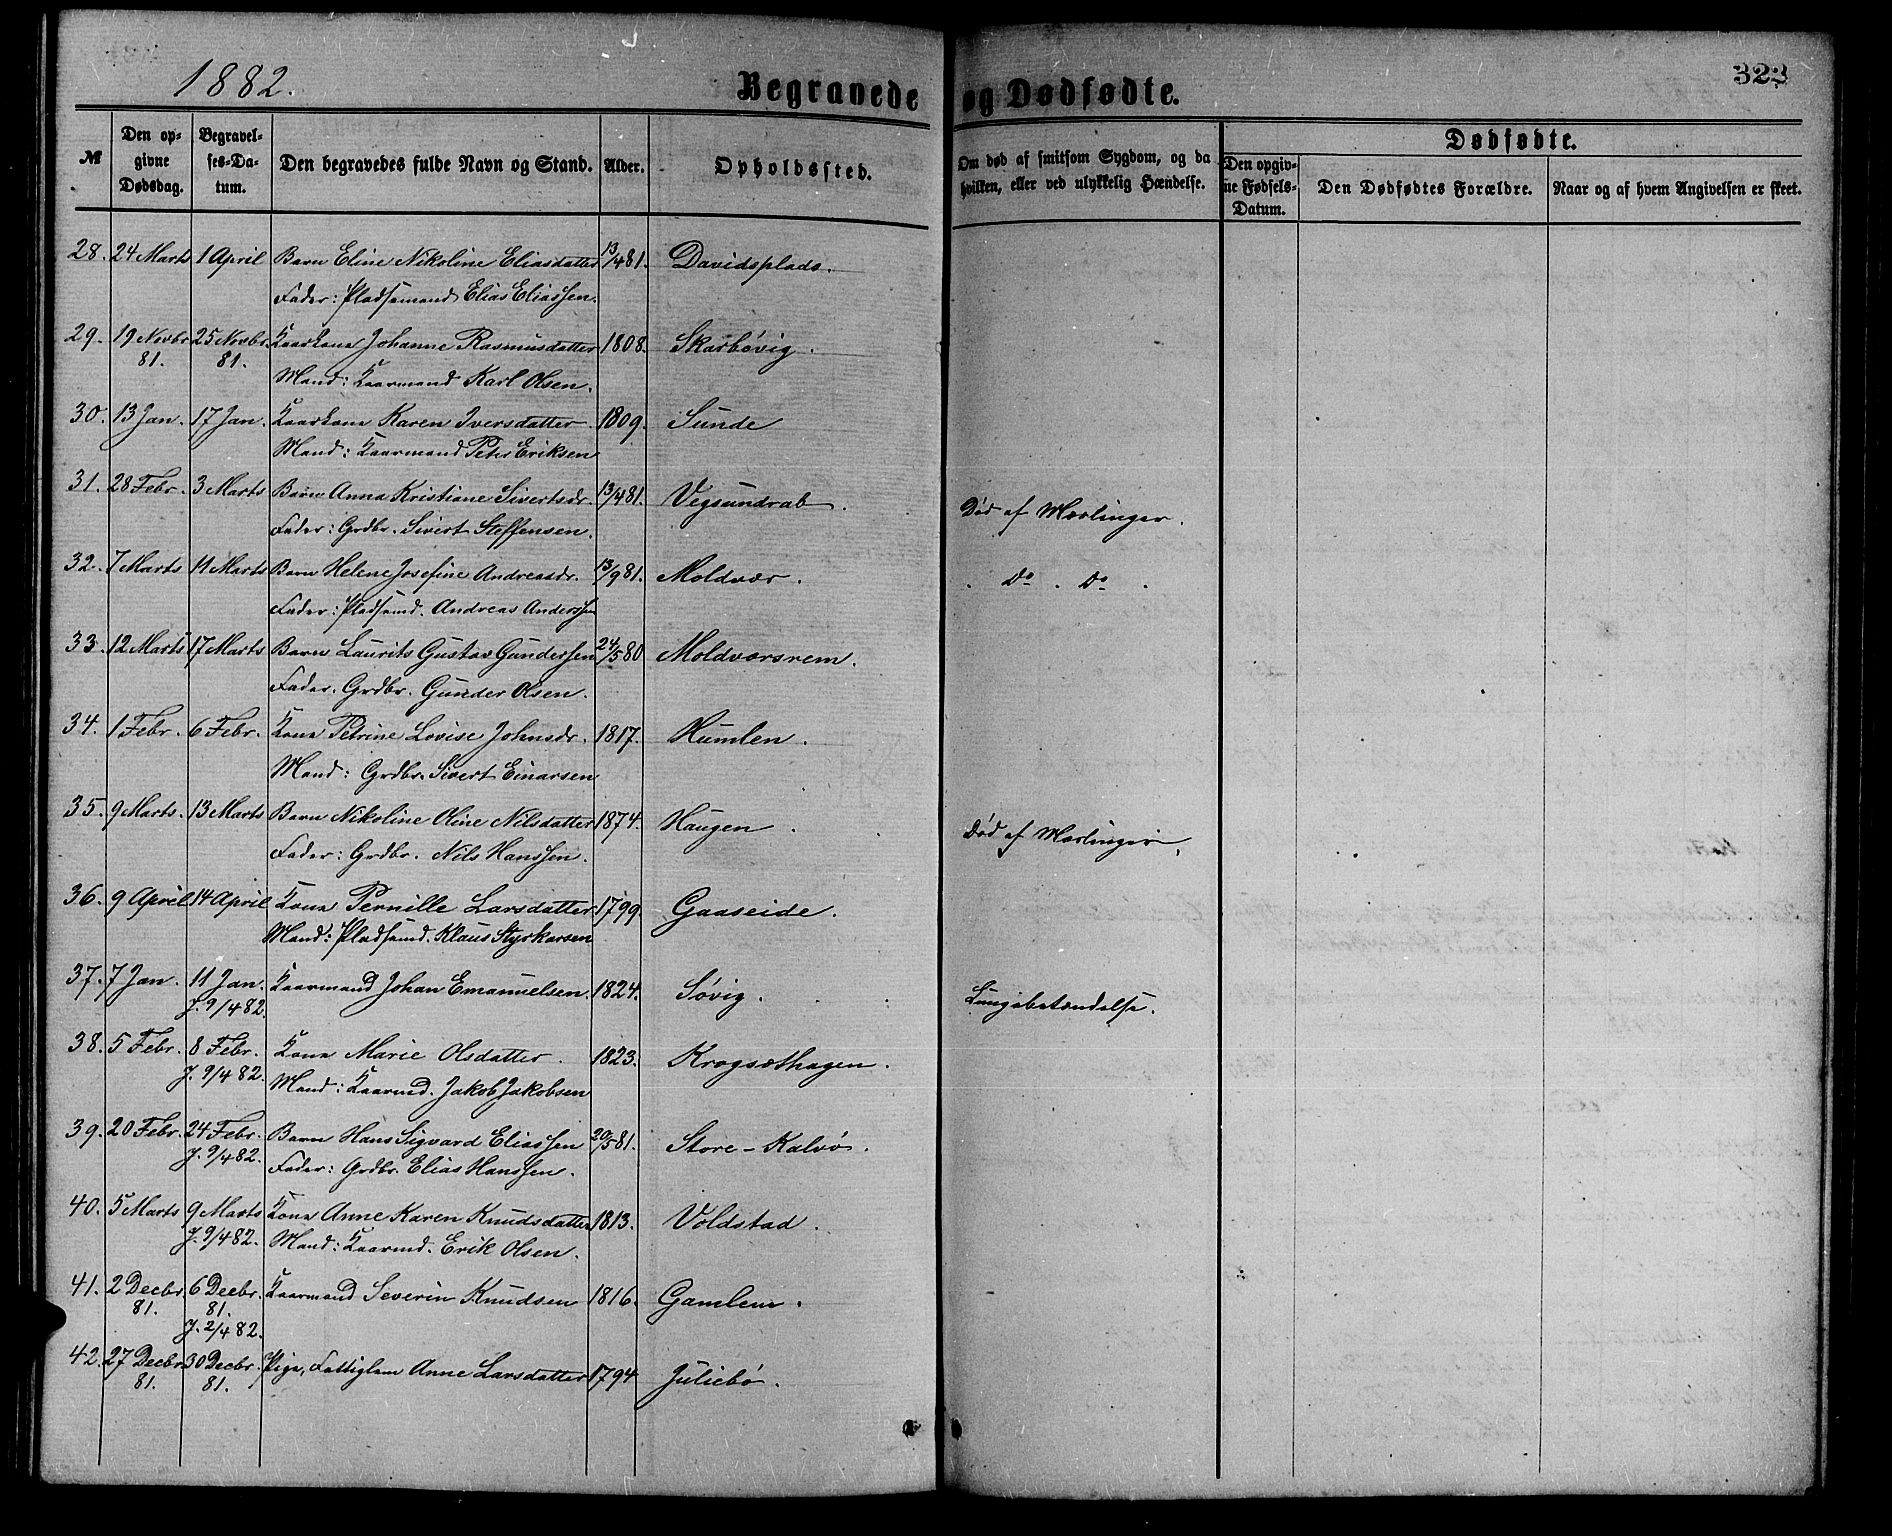 1882.
Begravede og Dødfødte.
323
№
Den opgivne Dødsdag.
Begravelses-Datum.
Den begravedes fulde Navn og Stand.
Alder.
Opholdssted.
Om død af smitsom Sygdom, og da hvilken, eller ved ulykkelig Hændelse.
Dødfødte.
Den opgivne Fødsels-Datum.
Den Dødfødtes Forældre.
Naar og af hvem Angivelsen er skeet.
28. 24 Marts 1 April Barn Eline Nikoline Eliasdatter 13/4 81. Davidsplads.
Fader: Pladsemand Elias Eliassen.
29. 19 Novbr 81. 25 Novbr. 81. Kaarkone Johanne Rasmusdatter 1808. Skarbøvig.
Mand: Kaarmand Karl Olsen.
30. 13 Jan. 17 Jan. Kaarkone Karen Iversdatter 1809. Sunde
Mand: Kaarmand Peter Eriksen
31. 28 Febr. 3 Marts Barn Anna Kristiane Sivertsdr. 13/4 81. Vegsundrab. Død af Mæslinger.
Fader: Grdbr. Sivert Steffensen.
32. 7 Marts 11 Marts Barn Helene Josefine Andreasdr. 13/9 81. Moldvær. Do. Do.
Fader: Pladsemd. Andreas Anderssen
33. 12 Marts 17 Marts Barn Laurits Gustav Gunderssen 24/5 80 Moldværsrem.
Fader. Grdbr. Gunder Olsen.
34. 1 Febr. 6 Febr. Kone Petrine Lovise Johnsdr. 1817. Humlen.
Mand: Grdbr. Sivert Einarsen
35. 9 Marts. 13 Marts Barn Nikoline Oline Nilsdatter 1874. Haugen. Død af Mæslinger.
Fader: Grdbr. Nils Hanssen.
36. 9 April 14 April Kone Pernille Larsdatter 1799. Gaaseide.
Mand: Pladsemd. Klaus Styrkarsen
37. 7 Jan. 11 Jan. J. 9/4 82. Kaarmand Johan Emanuelsen. 1824. Søvig. Lungebetændelse.
38. 5 Febr. 8 Febr. J. 9/4 82. Kone Marie Olsdatter. 1823. Krogsæthagen.
Mand: Kaarmd. Jakob Jakobsen
39. 20 Febr. 24 Febr. J. 9/4 82. Barn Hans Sigvard Eliassen 20/5 81. Store-Kalvø.
Fader: Grdbr. Elias Hanssen.
40. 5 Marts 9 Marts J. 9/4 82. Kone Anne Karen Knudsdatter 1813. Voldstad.
Mand: Kaarmd. Erik Olsen.
41. 2 Decbr. 81. 6 Decbr. 81. J. 2/4 82. Kaarmand Severin Knudsen 1816. Gamlem.
42. 27 Decbr. 81. 30 Decbr. 81. Pige, Fattiglem Anne Larsdatter 1794 Juliebø.